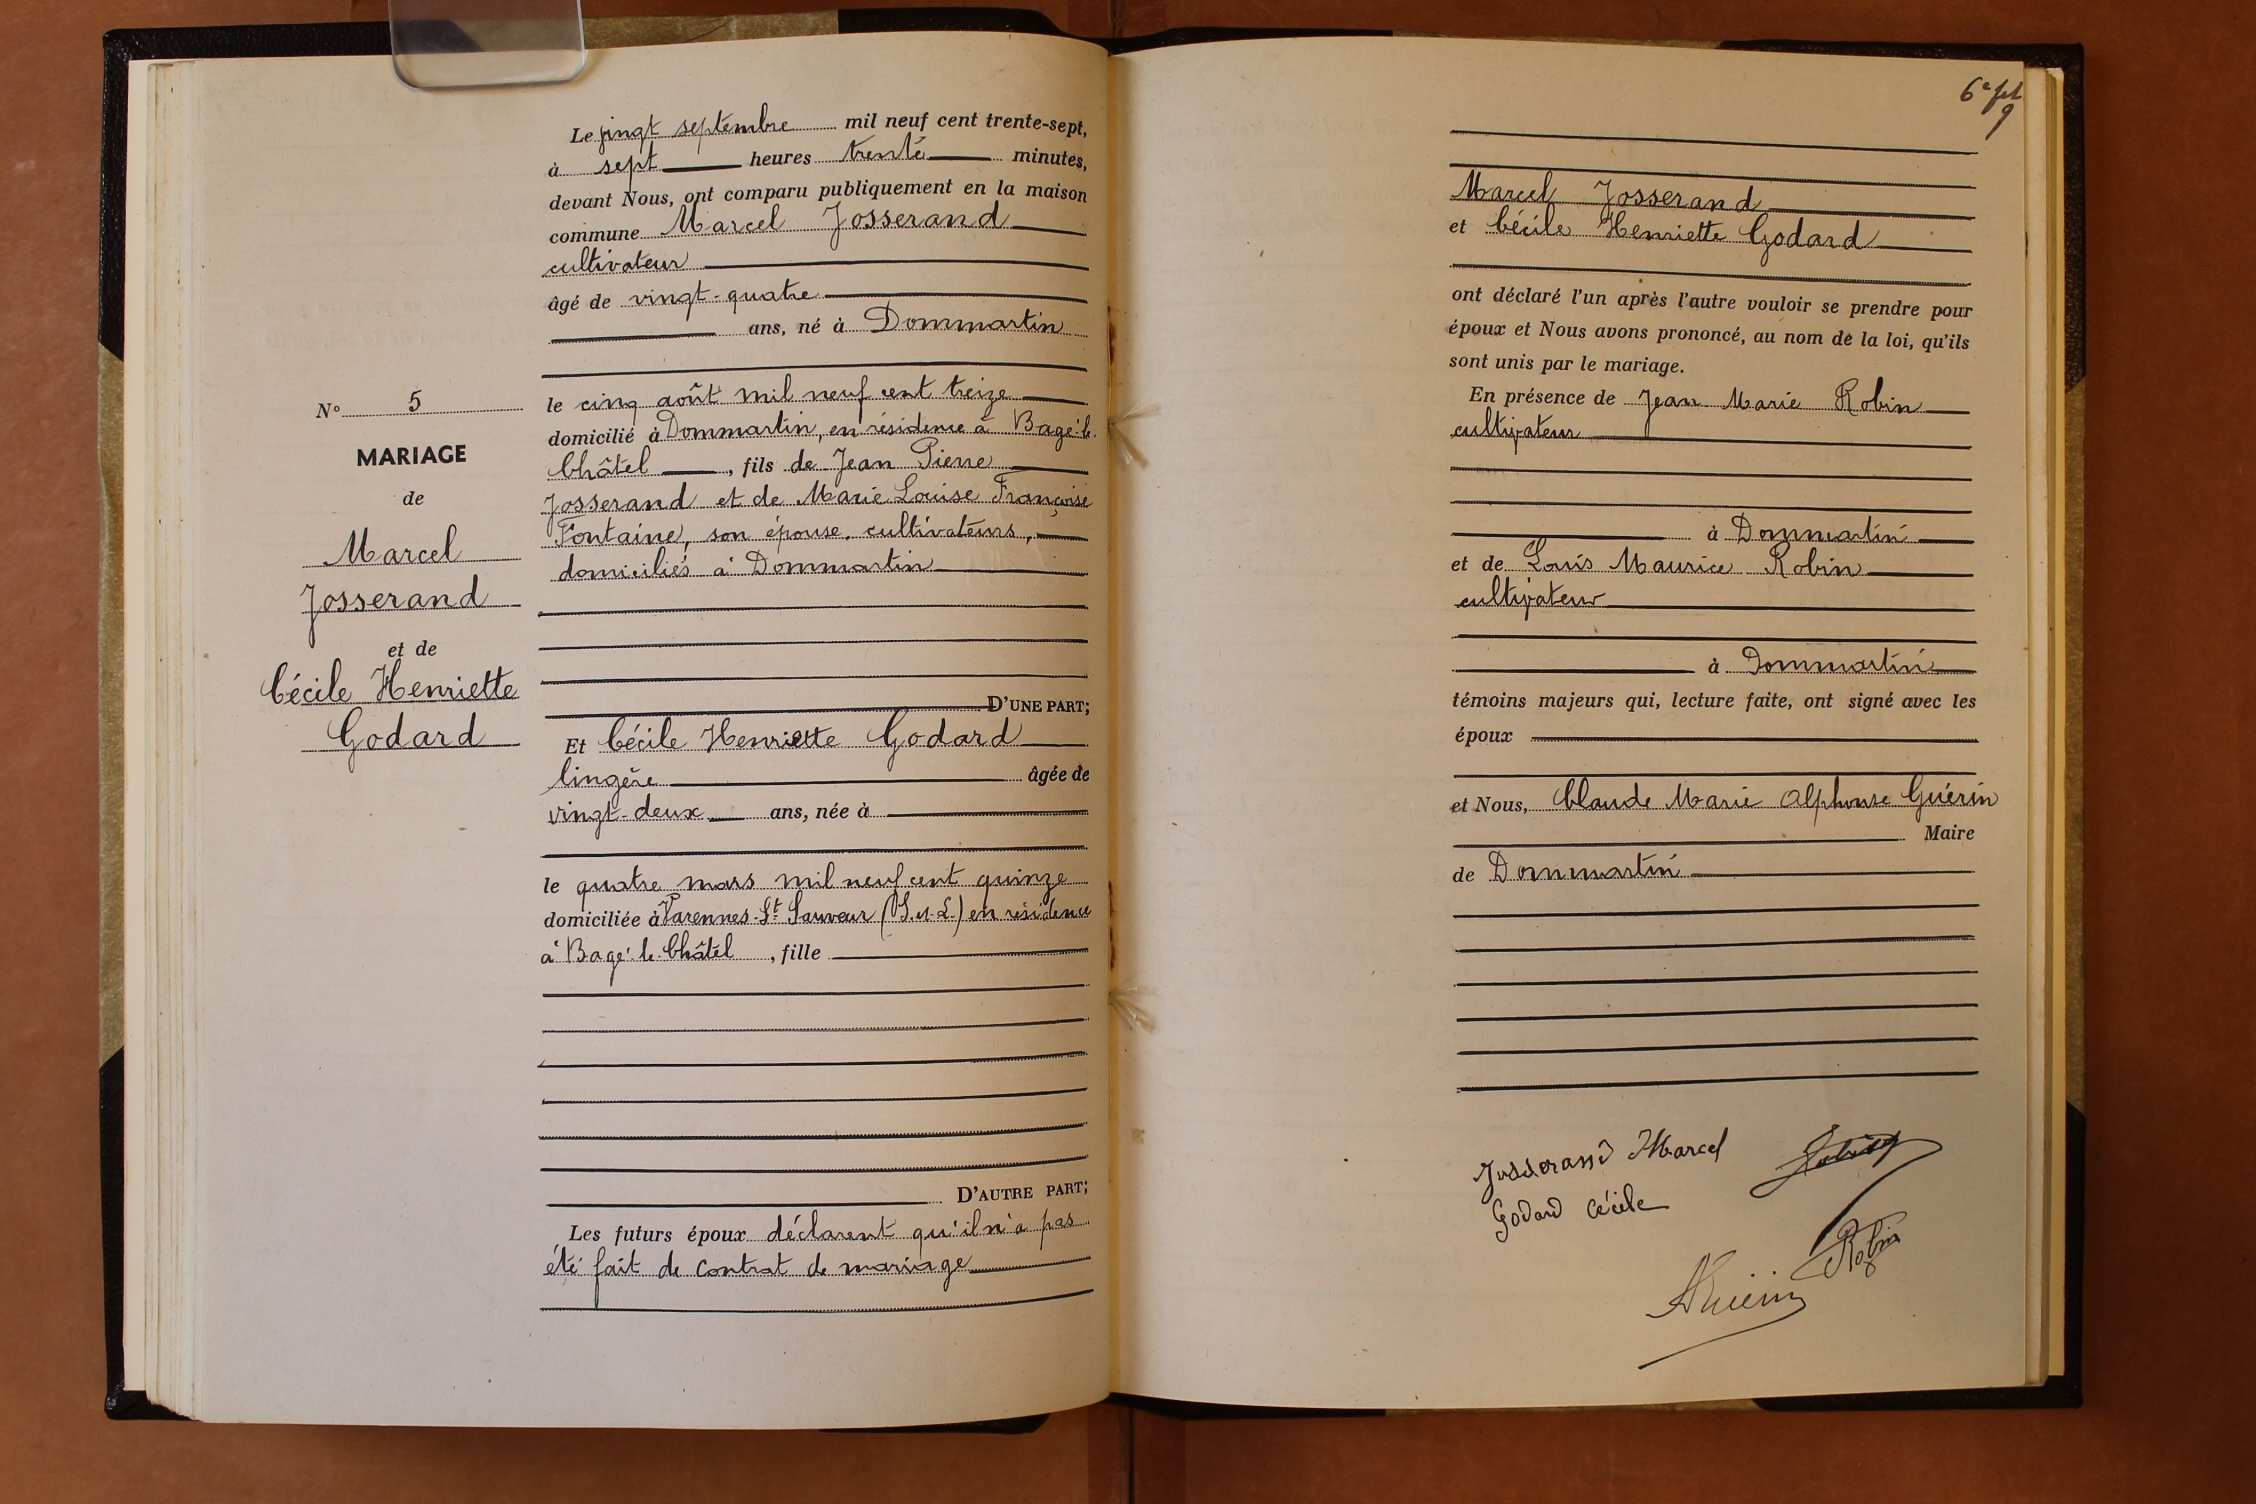 Le vingt septembre mil neuf cent trente-sept,
à sept heures trente minutes,
devant Nous, ont comparu publiquement en la maison
commune Marcel Josserand
cultivateur
âgé de vingt-quatre
ans, né à Dommartin
le cinq août mil neuf cent treize
domicilié à Dommartin, en résidence à Bagé-le-
Châtel, fils de Jean Pierre
Josserand et de Marie Louise Françoise
Fontaine, son épouse, cultivateurs,
domiciliés à Dommartin
D'UNE PART;
Et Cécile Henriette Godard
lingère âgée de
vingt-deux ans, née à
le quatre mars mil neuf cent quinze
domiciliée à Varennes-St Sauveur (S.-et-L.) en résidence
à Bagé-le-Châtel, fille
D'AUTRE PART;
Les futurs époux déclarent qu'il n'a pas
été fait de contrat de mariage
N° 5
MARIAGE
de
Marcel
Josserand
et de
Cécile Henriette
Godard
6e fet
9
Marcel Josserand
et Cécile Henriette Godard
ont déclaré l'un après l'autre vouloir se prendre pour
époux et Nous avons prononcé, au nom de la loi, qu'ils
sont unis par le mariage.
En présence de Jean Marie Robin
cultivateur
à Dommartin
et de Louis Maurice Robin
cultivateur
à Dommartin
témoins majeurs qui, lecture faite, ont signé avec les
époux
et Nous, Claude Marie Alphonse Guérin
Maire
de Dommartin
Josserand Marcel
Godard Cécile
Robin
AGuérin